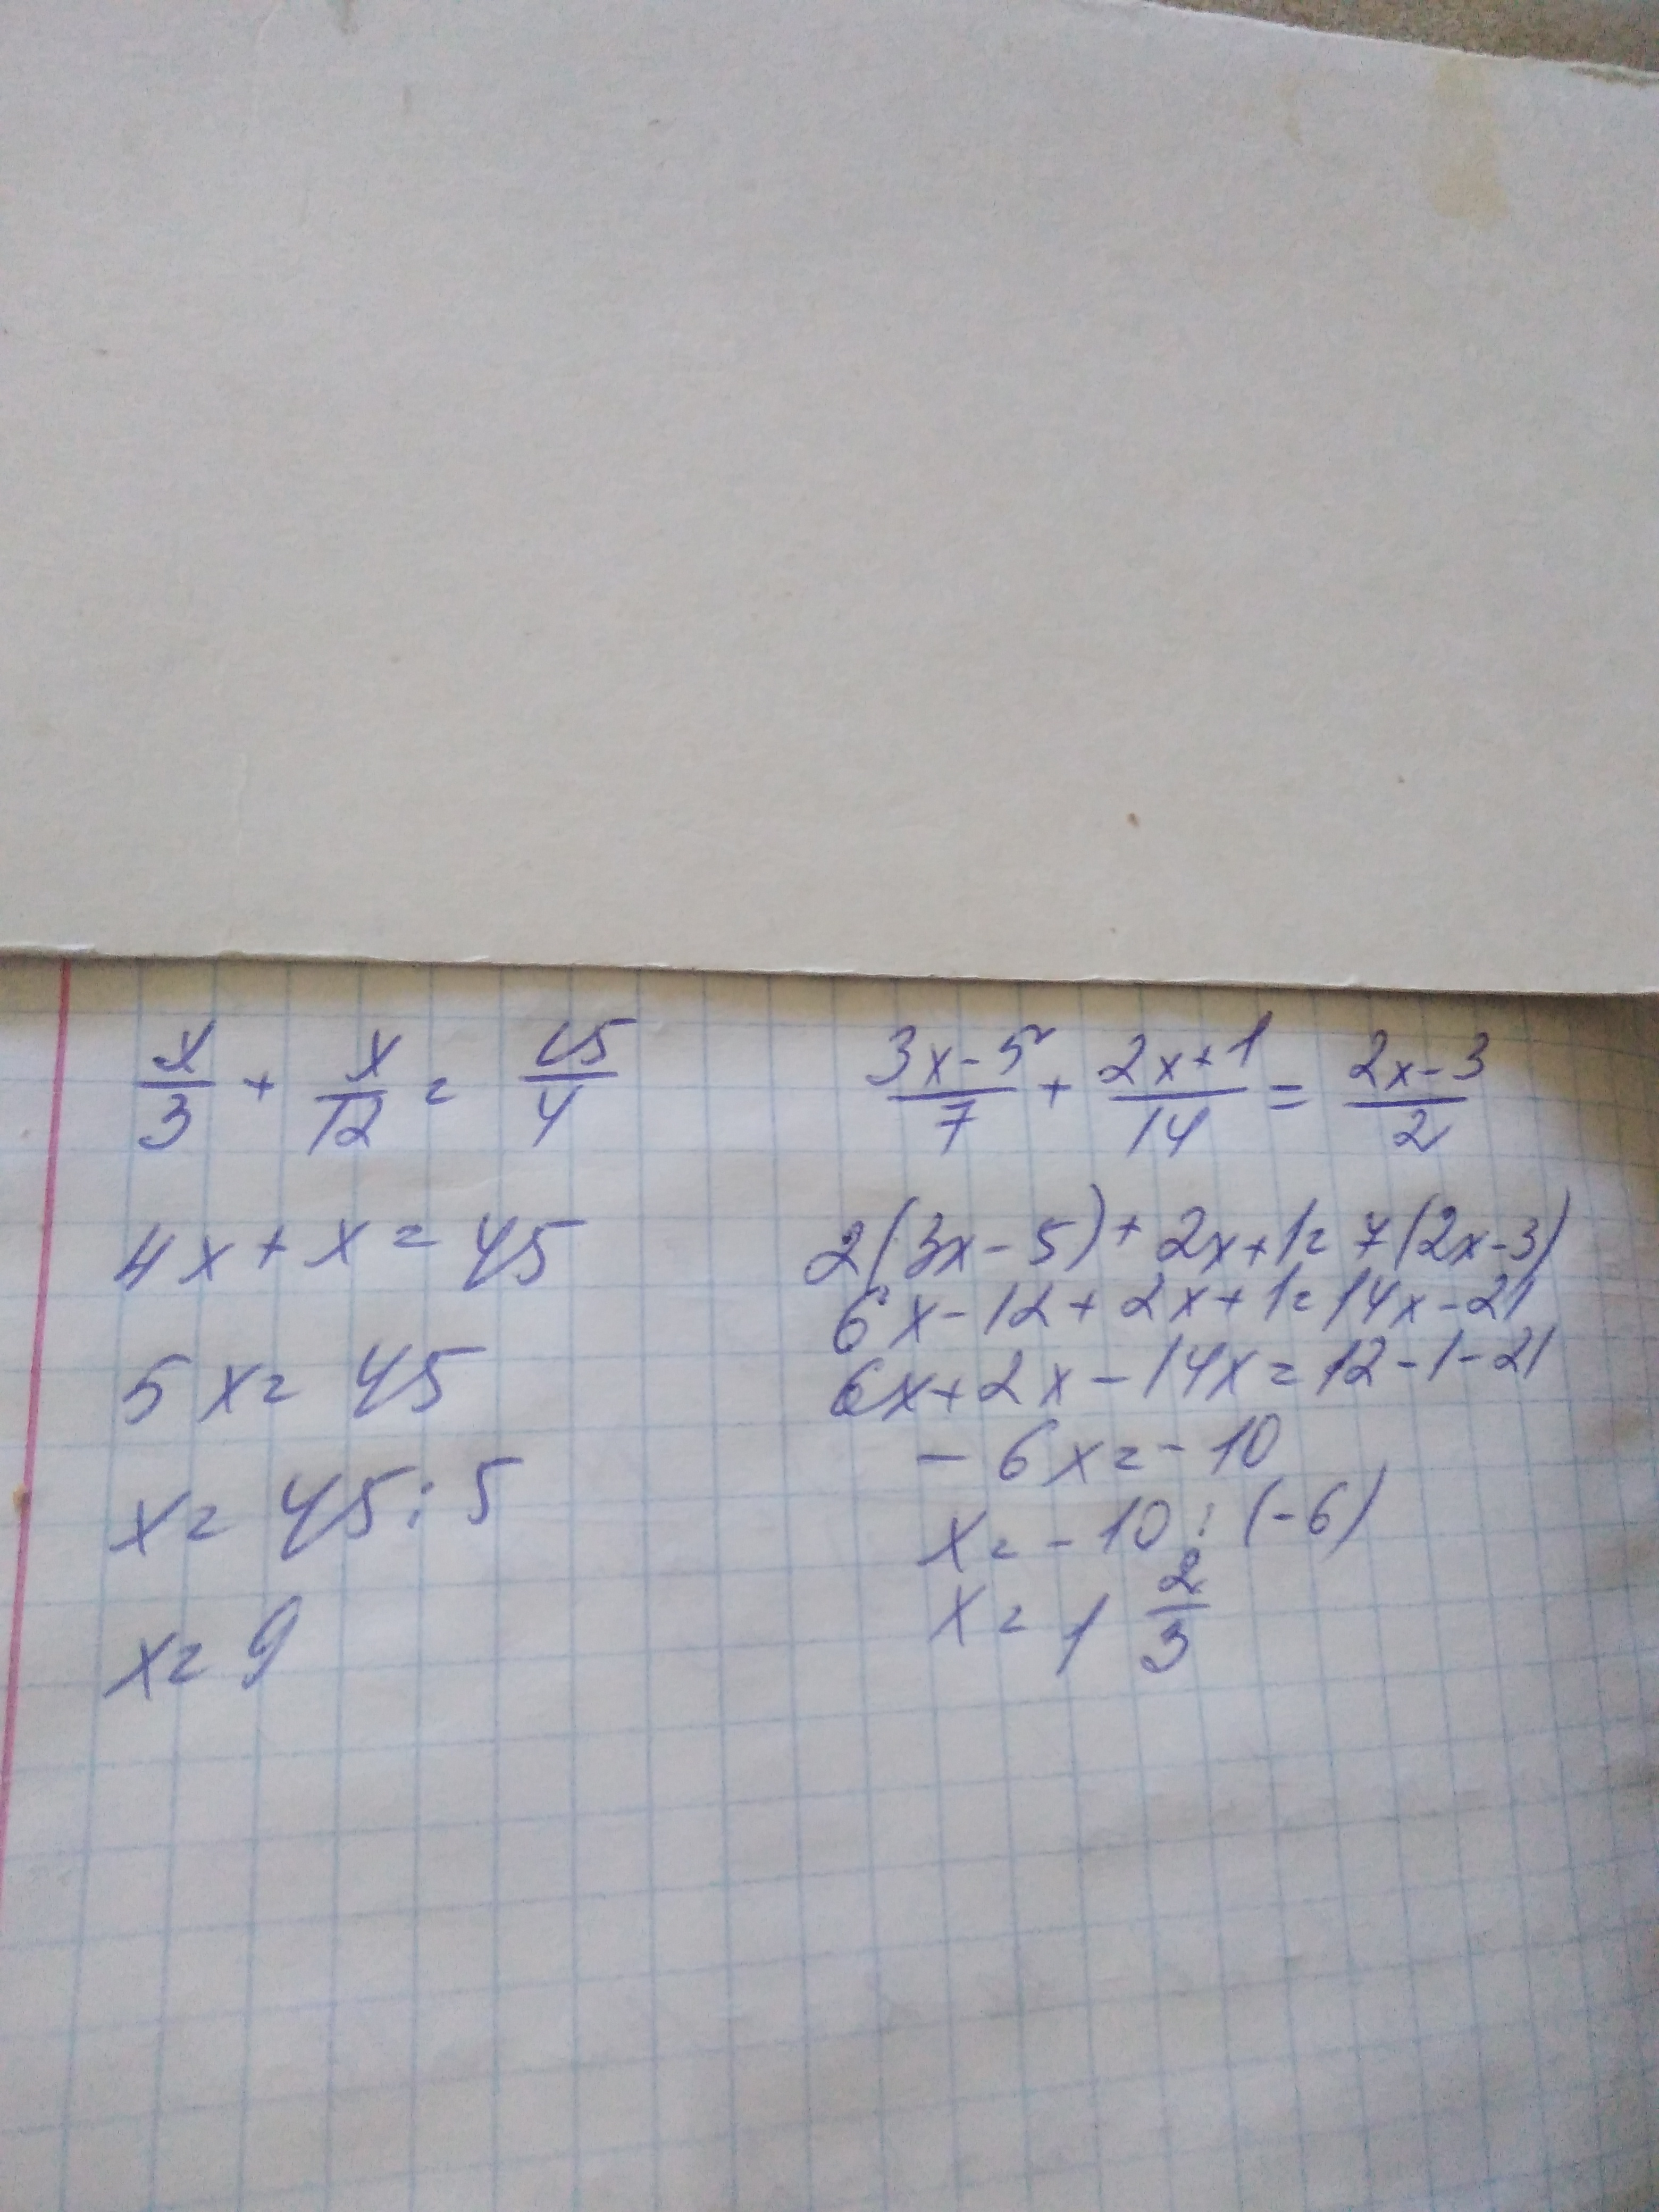 x/3 + x/12 = 15/4
4x + x = 45
5x = 45
x = 45 : 5
x = 9
(3x-5)/7 + (2x+1)/14 = (2x-3)/2
2(3x-5) + 2x+1 = 7(2x-3)
6x-12+2x+1=14x-21
6x+2x-14x=12-1-21
-6x=-10
x=-10:(-6)
x=1 2/3